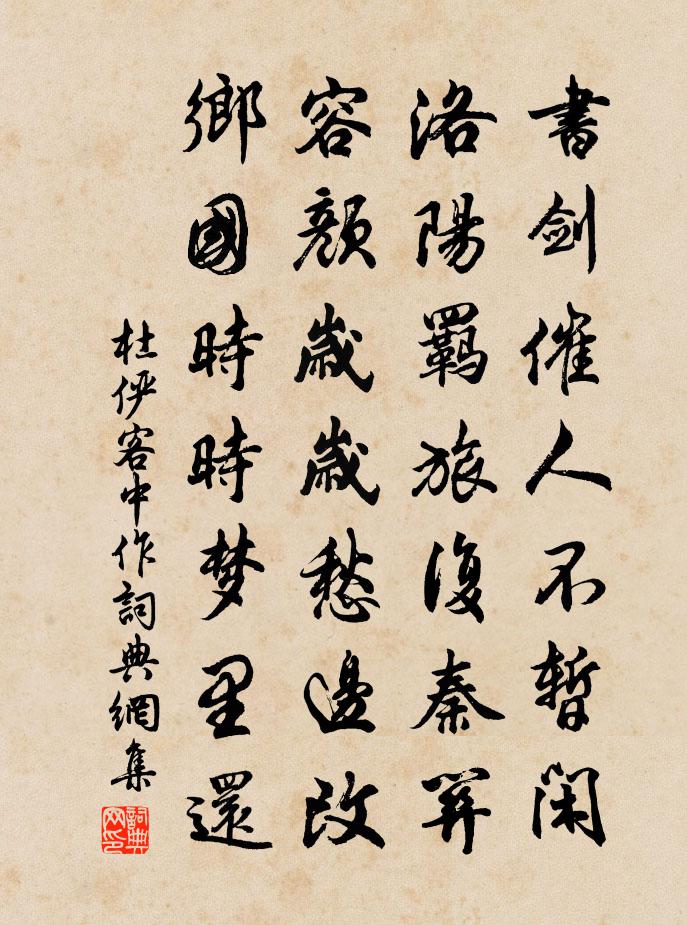 書剑催人不暫闲
洛陽羈旅復秦関
容顔歲歲愁邊改
鄉國時時梦里還
杜俨客中作詞典網集
詞典网印